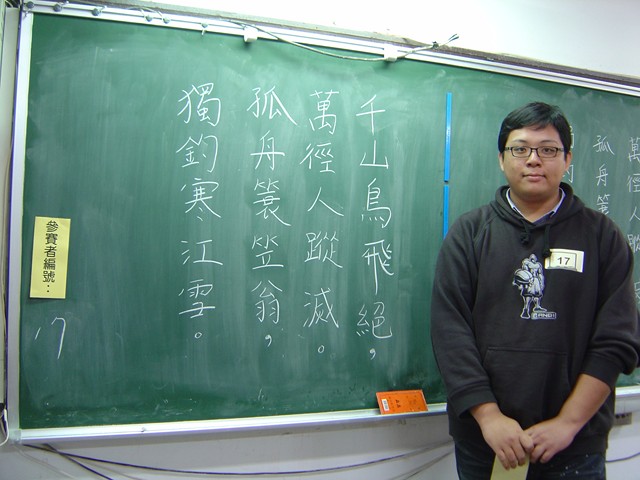 千山鳥飛絕，
萬徑人蹤滅。
孤舟簑笠翁，
獨釣寒江雪。
參賽者編號：
17
17
AND1
萬徑人蹤
孤舟簑